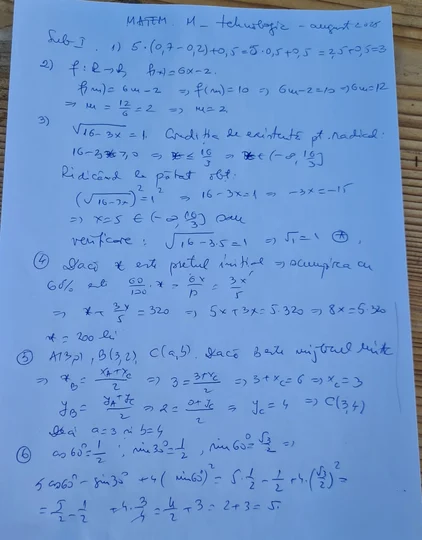 MATEM. M_ tehnologic - august 2025
Sub I. 1) 5·(0,7-0,2)+0,5=5·0,5+0,5=2,5+0,5=3
2) f:R→R f(x)=6x-2.
f(m)=6m-2 ⇒ f(m)=10 ⇒ 6m-2=10 ⇒ 6m=12
⇒ m=12/6=2 ⇒ m=2
3)
√16-3x=1. Condiția de existență pt. radical
16-3x≥0 ⇒ x≤16/3 ⇒ x∈(-∞,16/3]
Ridicând la pătrat obt.
(√16-3x)²=1² ⇒ 16-3x=1 ⇒ -3x=-15
⇒ x=5 ∈(-∞,16/3]
verificare: √16-3·5=1 ⇒ √1=1 Ⓐ.
④ Dacă x este prețul inițial ⇒ scumpirea cu
60% este 60/100·x=6x/10=3x/5
⇒ x+3x/5=320 ⇒ 5x+3x=5·320 ⇒ 8x=5·320
x=200 lei
⑤ A(3,0), B(3,2), C(a,b). Dacă B este mijlocul
⇒ x_B=x_A+x_C/2 ⇒ 3=3+x_C/2 ⇒ 3+x_C=6 ⇒ x_C=3
y_B=y_A+y_C/2 ⇒ 2=0+y_C/2 ⇒ y_C=4 ⇒ C(3,4)
Deci a=3 și b=4
⑥ cos60°=1/2; sin30°=1/2, sin60°=√3/2 ⇒
5cos60°-sin30°+4(sin60°)²=5·1/2-1/2+4·(√3/2)²=
=5/2-1/2+4·3/4=4/2+3=2+3=5.